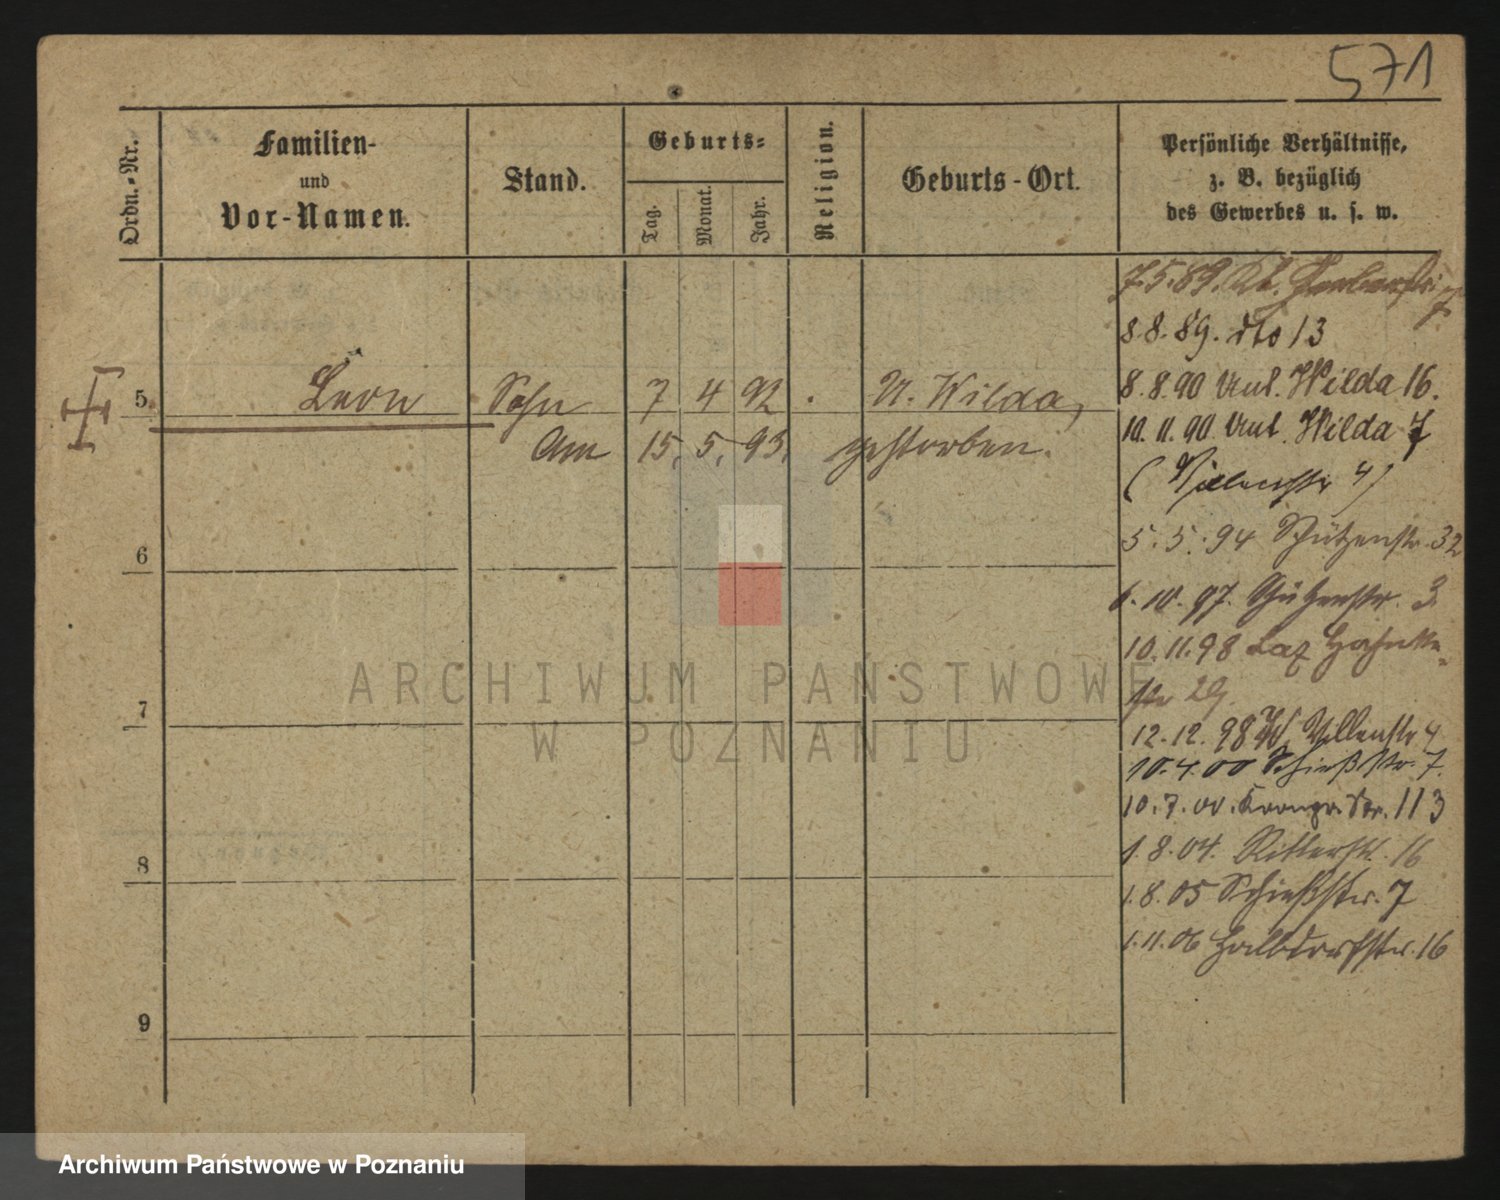 571
Ordn.-Nr.
Familien-
und
Vor-Namen.
Stand.
Geburts-
Tag.
Monat.
Jahr.
Religion.
Geburts-Ort.
Persönliche Verhältnisse,
z. B. bezüglich
des Gewerbes u. s. w.
7.5.89.
8.8.89. dto 13
5 Leon Sohn 7 4 92 . U. Wilda,
8.8.90 Unt. Wilda 16.
10.11.90 Unt. Wilda 7
Am 15. 5. 93. gestorben.
5.5.94 Schützenstr. 32
6
6.10.97. Schützenstr. 3
10.11.98 Laz
str 29
7
12.12.98 W. Villenstr 4
10.4.00 Schießstr. 7.
10.7.00. Kronpr. Str. 113
1.8.04. Ritterstr. 16
8
1.8.05 Schießstr. 7
1.11.06 Halbdorfstr. 16
9
ARCHIWUM PAŃSTWOWE
W POZNANIU
Archiwum Państwowe w Poznaniu